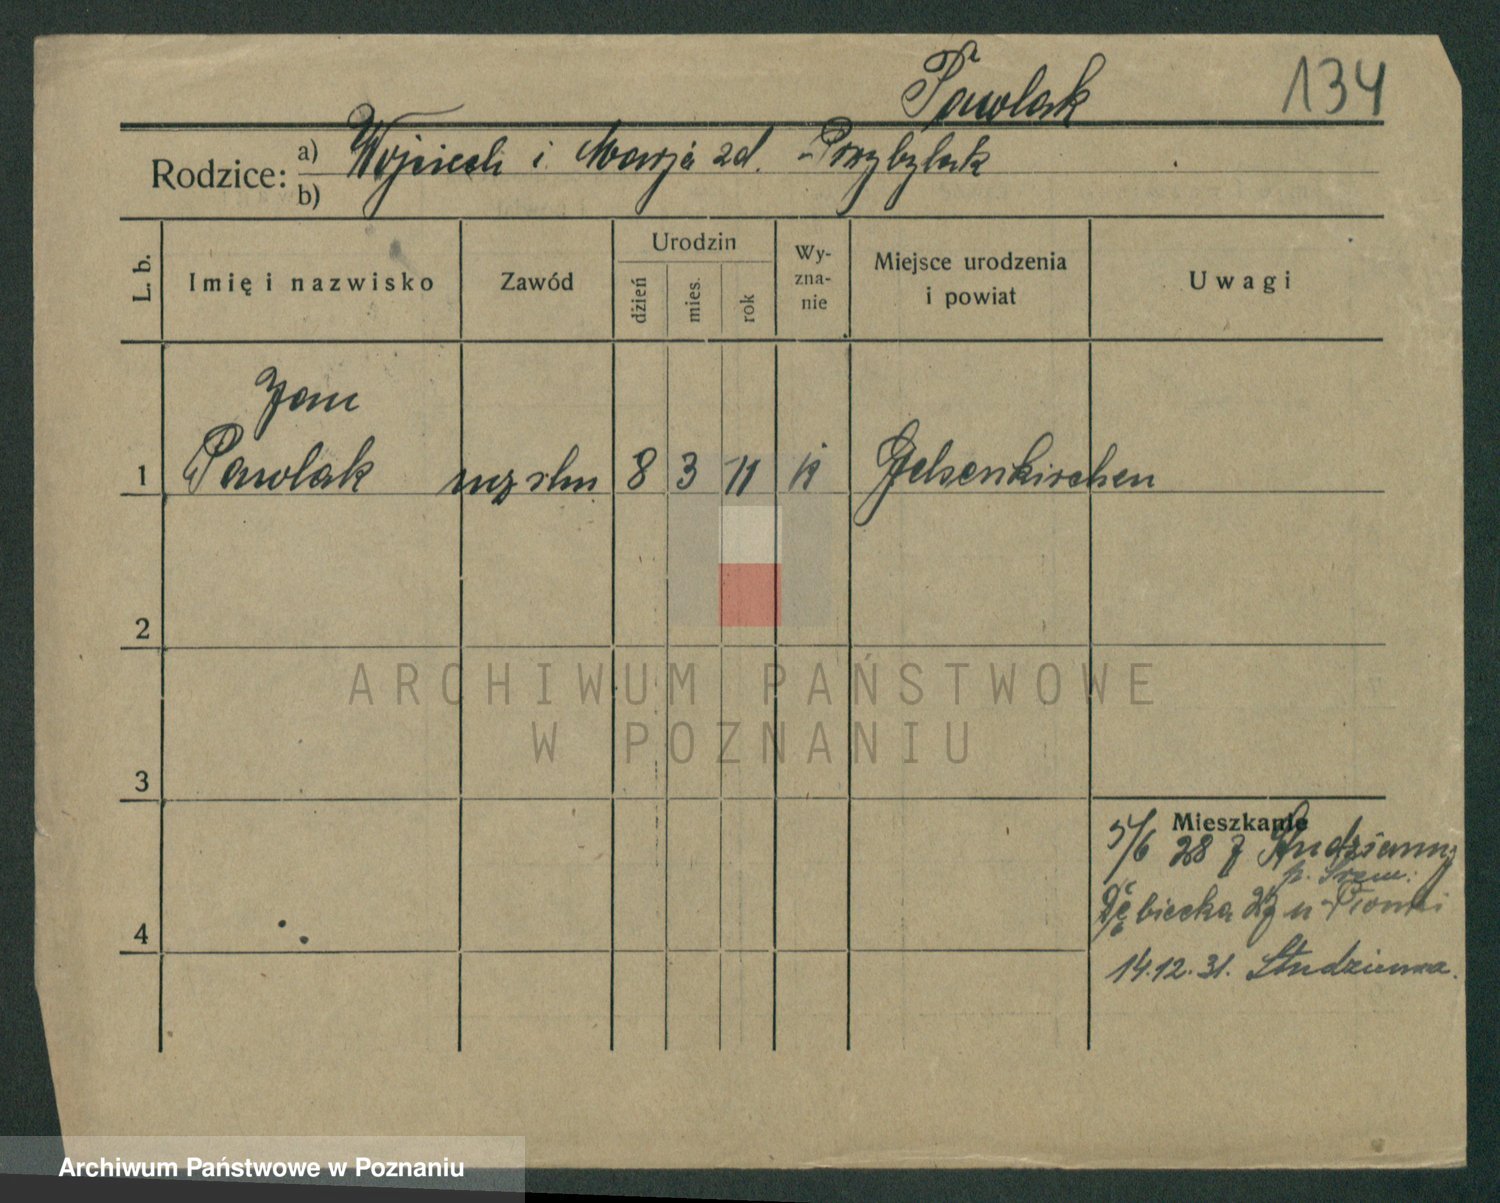 Pawlak
134
Rodzice: a) Wojciech i Marja zd. Przybylak
b)
L. b. Imię i nazwisko Zawód Urodzin dzień mies. rok Wyznanie Miejsce urodzenia i powiat Uwagi
Jan
1 Pawlak 8 3 11 Gelsenkirchen
2
3
4
Mieszkanie
5/6 28 z
p. Śrem.
Dębiecka 27 u
14.12.31. Studzienna.
ARCHIWUM PAŃSTWOWE
W POZNANIU
Archiwum Państwowe w Poznaniu